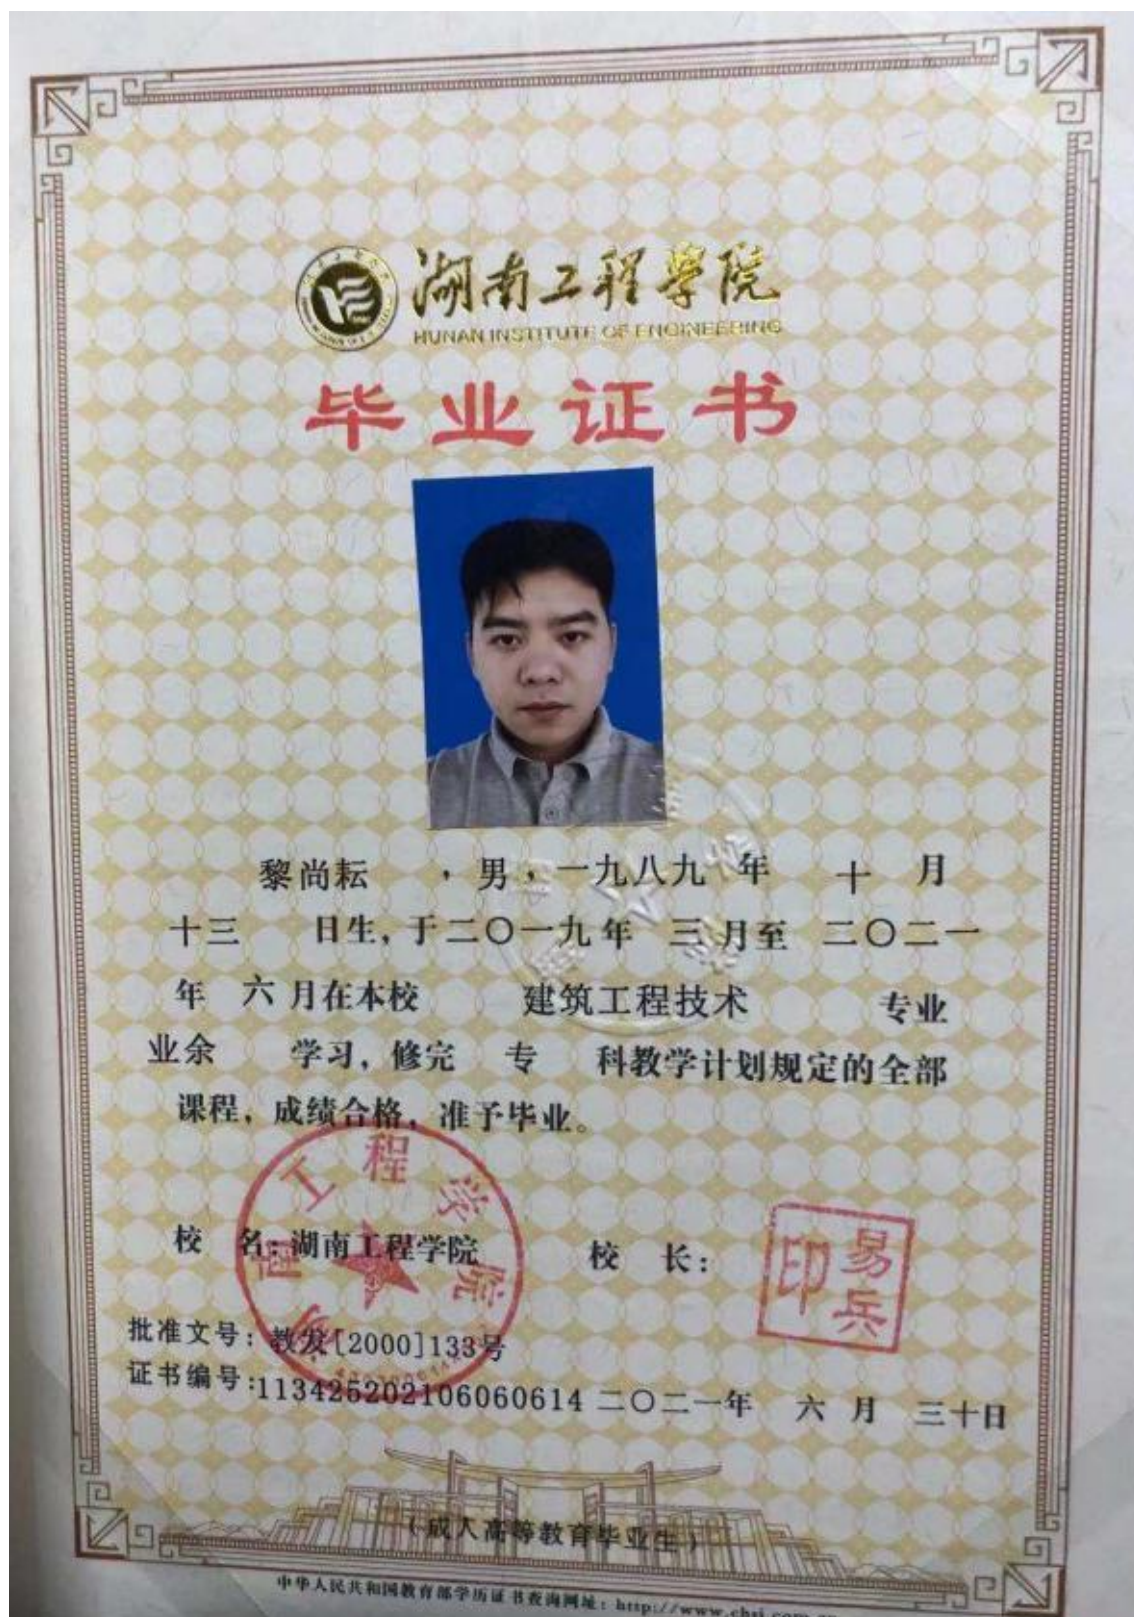 湖南工程学院
HUNAN INSTITUTE OF ENGINEERING
毕业证书
黎尚耘 ，男，一九八九 年 十 月
十三 日生，于二〇一九年 三月至 二〇二一
年 六 月在本校 建筑工程技术 专业
业余 学习，修完 专 科教学计划规定的全部
课程，成绩合格，准予毕业。
校 名：湖南工程学院 校 长：
易兵印
批准文号：教发[2000]133号
证书编号：113425202106060614 二〇二一年 六 月 三十日
（成人高等教育毕业生）
中华人民共和国教育部学历证书查询网址：http://www.chsi.com.cn